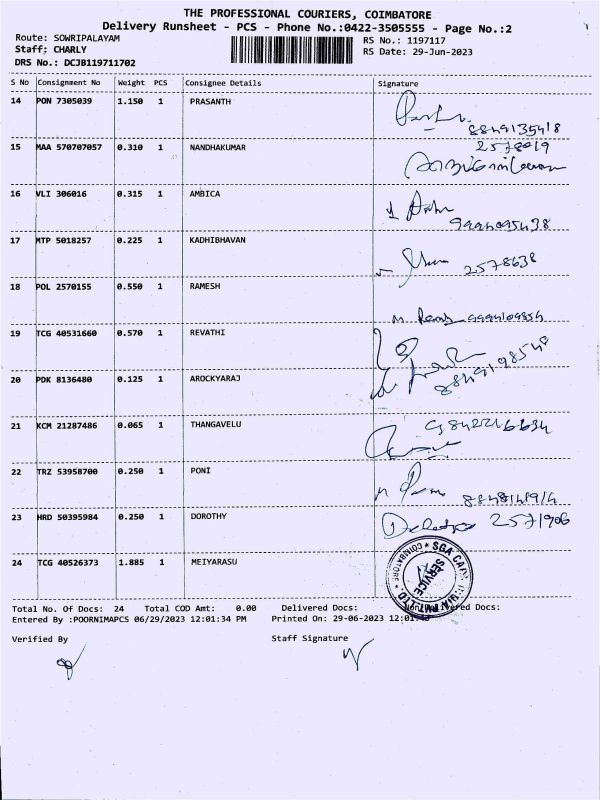 THE PROFESSIONAL COURIERS, COIMBATORE
Delivery Runsheet - PCS - Phone No.:0422-3505555 - Page No.:2
Route: SOWRIPALAYAM RS No.: 1197117
Staff: CHARLY RS Date: 29-Jun-2023
DRS No.: DCJB119711702
S No Consignment No Weight PCS Consignee Details Signature
14 PON 7305039 1.150 1 PRASANTH
15 MAA 570707057 0.310 1 NANDHAKUMAR
16 VLI 306016 0.315 1 AMBICA
17 MTP 5018257 0.225 1 KADHIBHAVAN
2578638
18 POL 2570155 0.550 1 RAMESH
19 TCG 40531660 0.570 1 REVATHI
20 PDK 8136480 0.125 1 AROCKYARAJ
21 KCM 21287486 0.065 1 THANGAVELU
22 TRZ 53958700 0.250 1 PONI
23 HRD 50395984 0.250 1 DOROTHY
2571906
24 TCG 40526373 1.885 1 MEIYARASU
COIMBATORE * SGA
SERVICE
Total No. Of Docs: 24 Total COD Amt: 0.00 Delivered Docs: Non Delivered Docs:
Entered By :POORNIMAPCS 06/29/2023 12:01:34 PM Printed On: 29-06-2023
Verified By Staff Signature